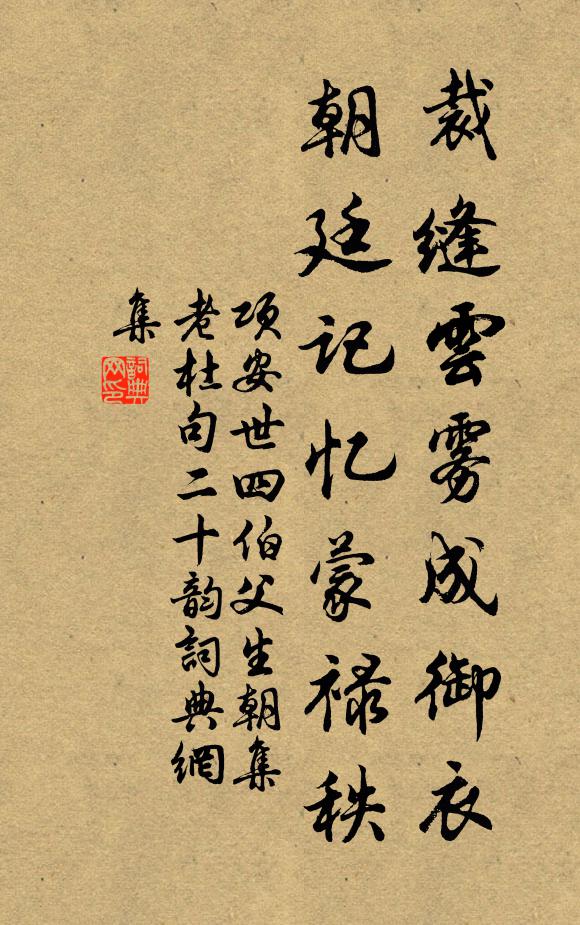 裁縫雲雾成御衣
朝廷记忆蒙禄秩
项安世四伯父生朝集
老杜句二十韵詞典網
集
詞典
网印